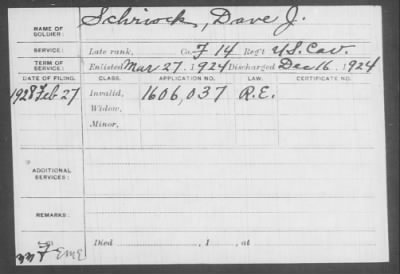 NAME OF SOLDIER: Schriock, Dave J.
SERVICE: Late rank, Co. F 14 Reg't U.S. Cav.
TERM OF SERVICE: Enlisted Mar 27, 1924 Discharged Dec 16, 1924
DATE OF FILING. CLASS. APPLICATION NO. LAW. CERTIFICATE NO.
1928 Feb 27 Invalid, 1606,037 R.E.
Widow,
Minor,
ADDITIONAL SERVICES:
REMARKS:
Died , 1 , at
EME